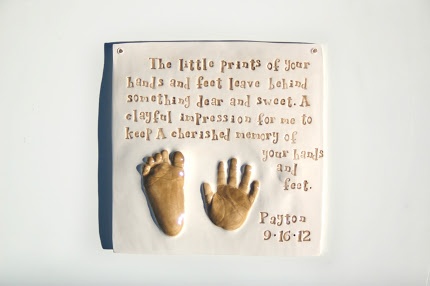 The little prints of your
hands and feet leave behind
something dear and sweet. A
clayful impression for me to
keep A cherished memory of
your hands
and
feet.
Payton
9·16·12